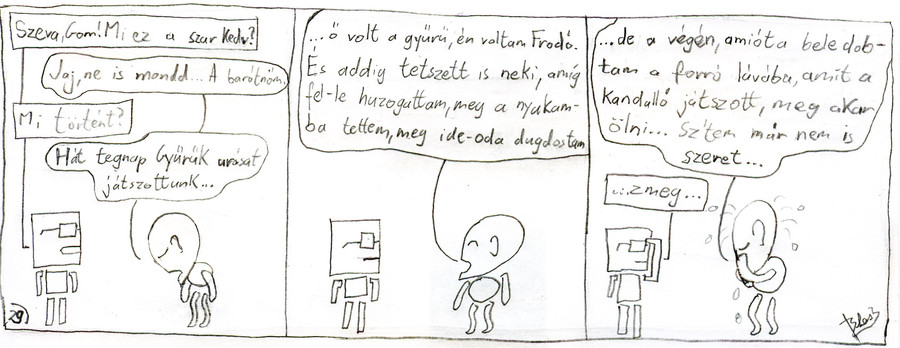 Szeva, Gom! Mi ez a szar kedv?
Jaj, ne is mondd... A barátnőm.
Mi történt?
Hát tegnap Gyűrűk urását
játszottunk...
...ő volt a gyűrű, én voltam Frodó.
És addig tetszett is neki, amíg
fel-le huzogattam, meg a nyakam-
ba tettem, meg ide-oda dugdostam
...de a végén, amióta beledob-
tam a forró lávába, amit a
kandalló játszott, meg akar
ölni... Sz'tem már nem is
szeret...
...zmeg...
29